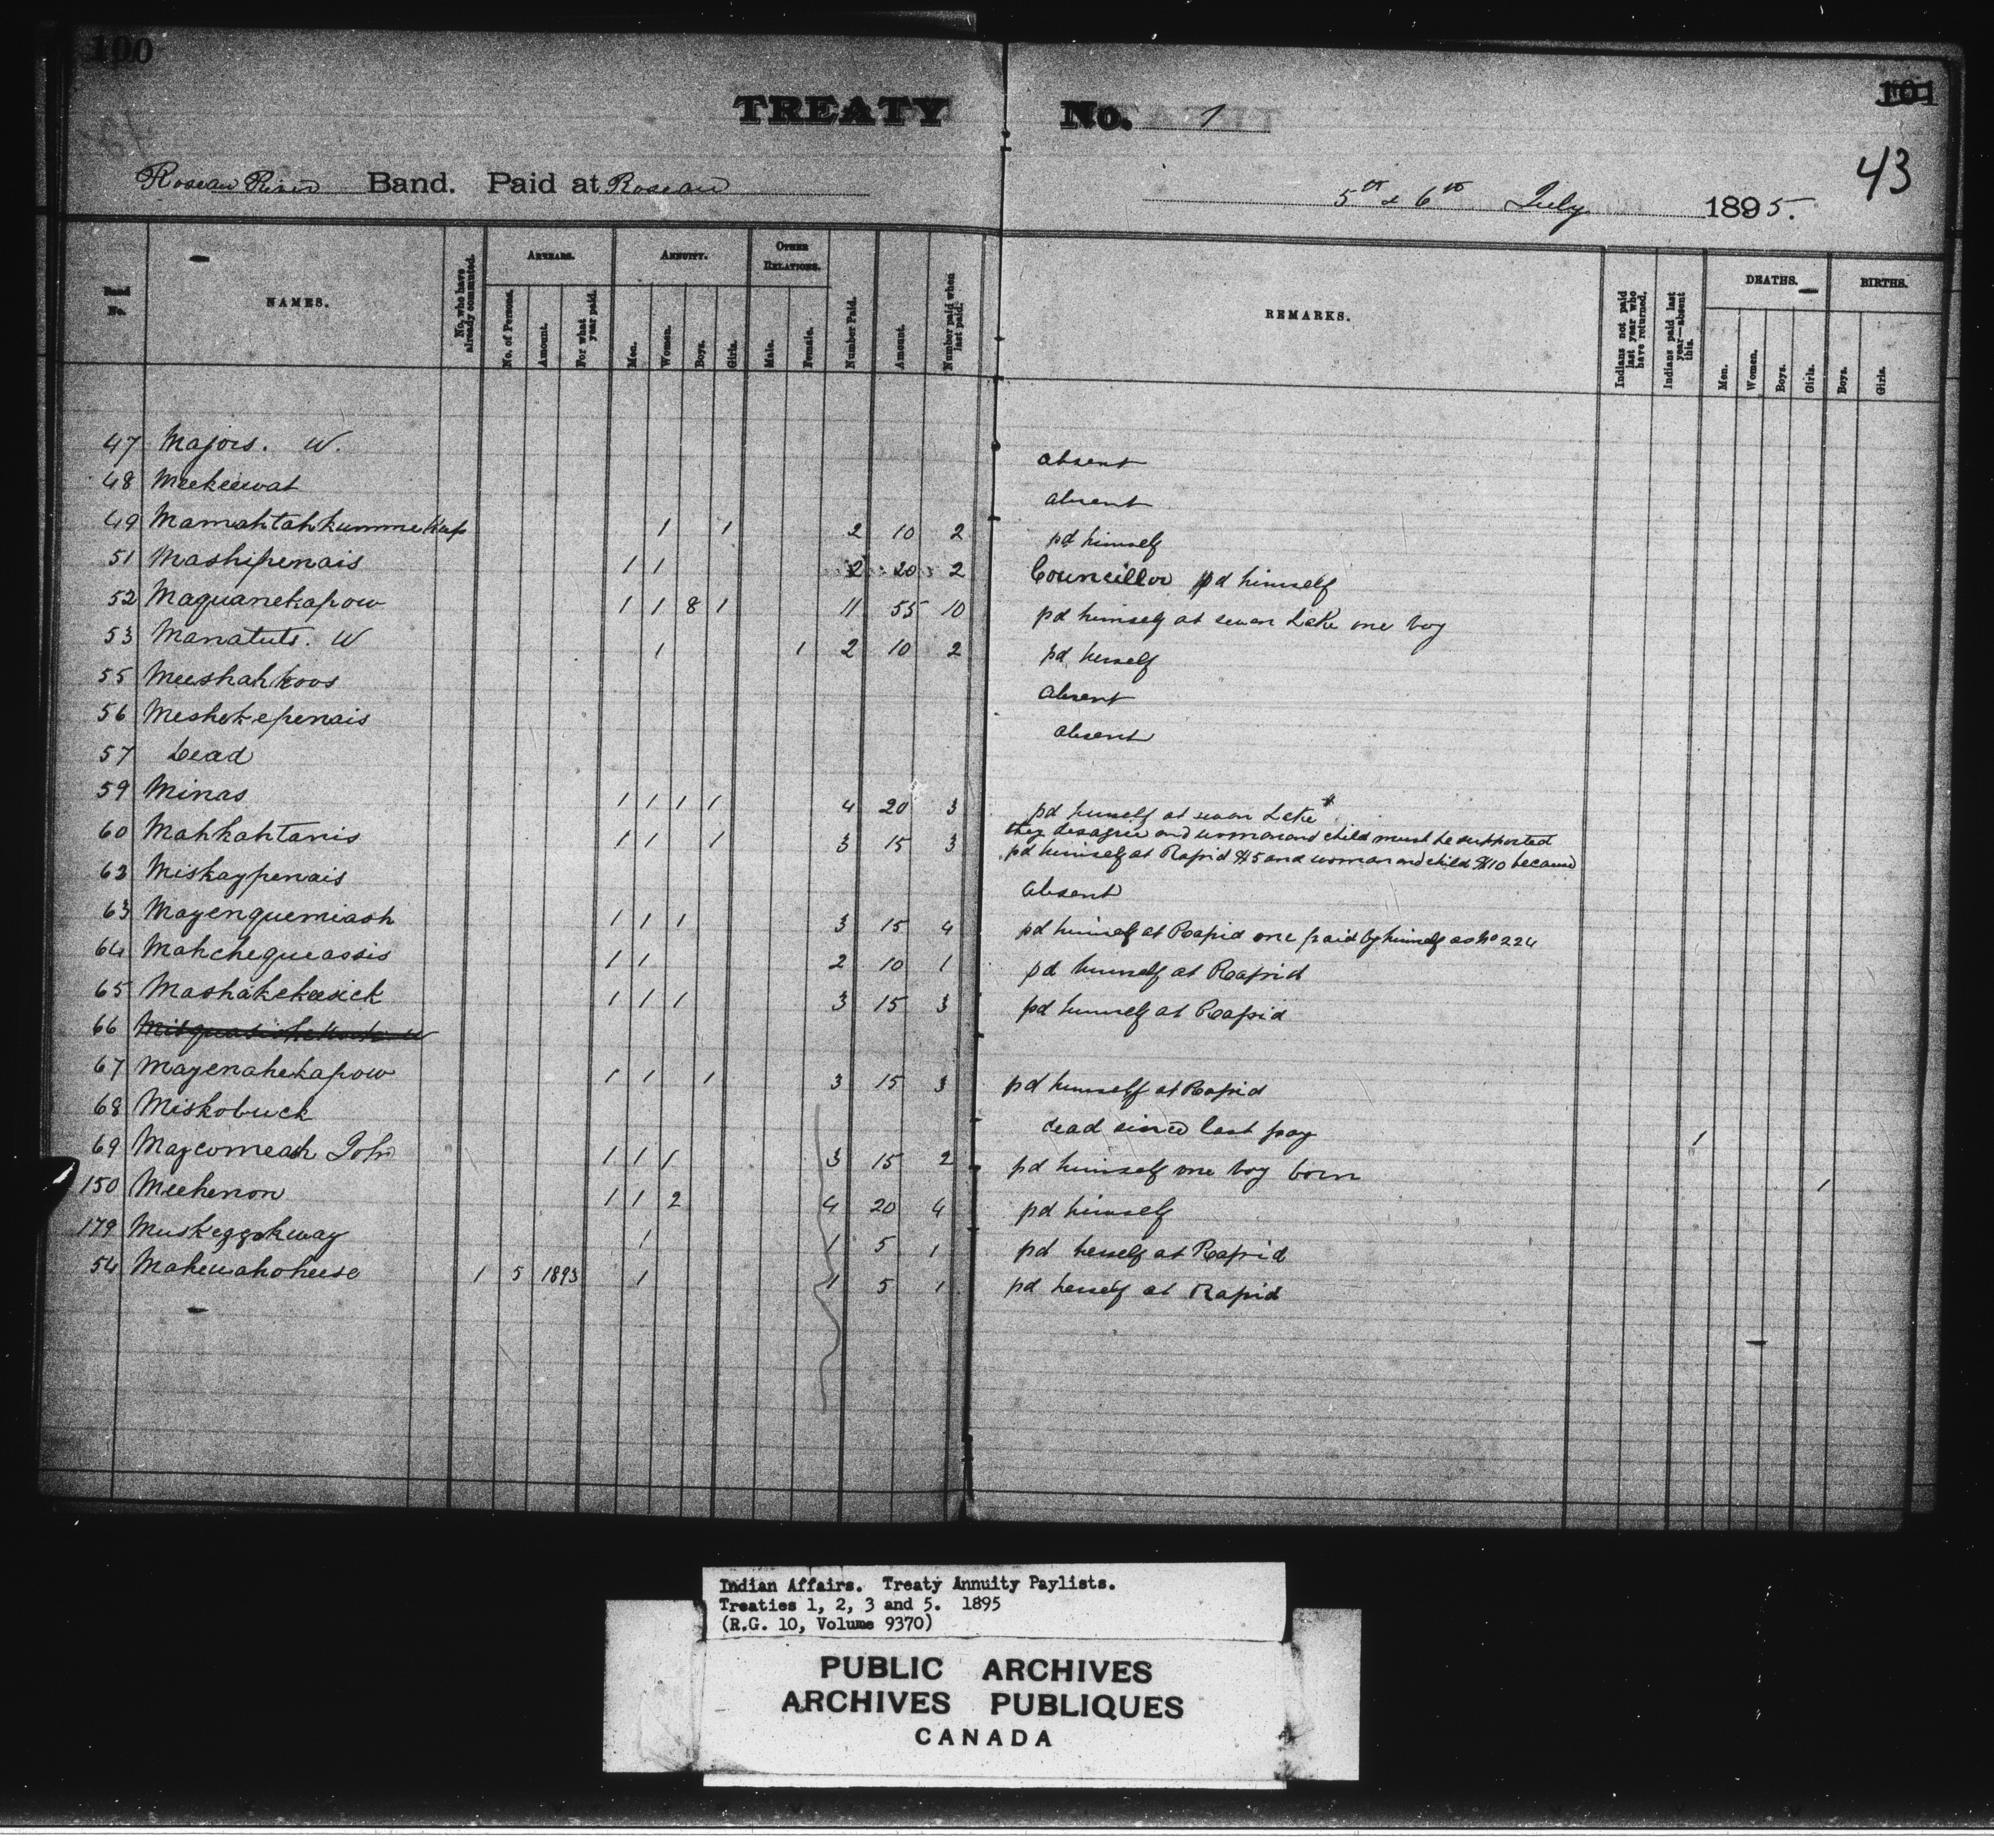 100
TREATY No. 1
101
43
Roseau River Band. Paid at Roseau 5th & 6th July 1895.
Band No. NAMES. No. who have already commuted. ARREARS. No. of Persons. Amount. For what year paid. ANNUITY. Men. Women. Boys. Girls. OTHER RELATIONS. Male. Female. Number Paid. Amount. Number paid when last paid. REMARKS. Indians not paid last year who have returned. Indians paid last year—absent this. DEATHS. Men. Women. Boys. Girls. BIRTHS. Boys. Girls.
47 Majors. W. absent
48 Meekeewat absent
49 Mamahtahkumme Kap 1 1 2 10 2 pd himself
51 Mashipenais 1 1 2 20 2 Councillor pd himself
52 Maquanekapow 1 1 8 1 11 55 10 pd himself at swan Lake one boy
53 Manatuts. W 1 1 2 10 2 pd herself
55 Meeshahkoos absent
56 Meshekepenais absent
57 Dead
59 Minas 1 1 1 1 4 20 3 pd himself at swan Lake
they disagree and woman and child must be supported
60 Mahkahtanis 1 1 1 3 15 3 pd himself at Rapid $5 and woman and child $10 because
62 Miskaypenais absent
63 Mayenguemiash 1 1 1 3 15 4 pd himself at Rapid one paid by himself as No 224
64 Mahchegueassis 1 1 2 10 1 pd himself at Rapid
65 Mashakekeesick 1 1 1 3 15 3 pd himself at Rapid
66
67 Mayenahekapow 1 1 1 3 15 3 pd himself at Rapid
68 Miskobuck dead since last pay 1
69 Maycomeash John 1 1 1 3 15 2 pd himself one boy born 1
150 Meehenon 1 1 2 4 20 4 pd himself
179 Muskeggokway 1 1 5 1 pd herself at Rapid
54 Mahewahoheese 1 5 1893 1 1 5 1 pd herself at Rapid
Indian Affairs. Treaty Annuity Paylists.
Treaties 1, 2, 3 and 5. 1895
(R.G. 10, Volume 9370)
PUBLIC ARCHIVES
ARCHIVES PUBLIQUES
CANADA